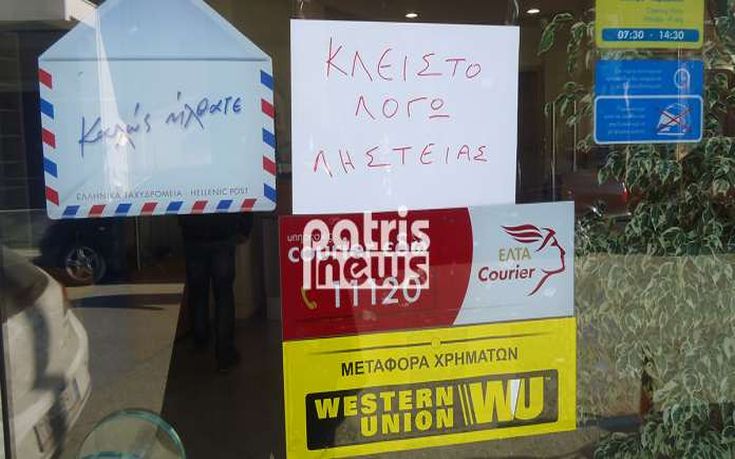 Καλώς ήλθατε
ΕΛΛΗΝΙΚΑ ΤΑΧΥΔΡΟΜΕΙΑ - HELLENIC POST
ΚΛΕΙΣΤΟ
ΛΟΓΩ
ΛΗΣΤΕΙΑΣ
07:30 - 14:30
patris
news
courier
11120
ΕΛΤΑ
Courier
ΜΕΤΑΦΟΡΑ ΧΡΗΜΑΤΩΝ
WESTERN
UNION
WU